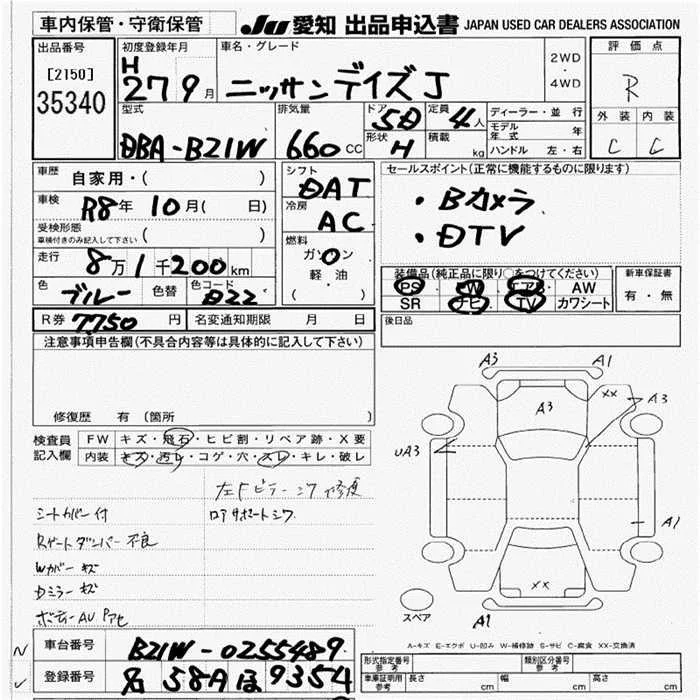 車内保管・守衛保管 JU 愛知 出品申込書 JAPAN USED CAR DEALERS ASSOCIATION
出品番号 初度登録年月 車名・グレード 評価点
[2150] H 27 9月 ニッサンデイズJ 2WD・4WD R
35340 型式 排気量 ドア 5D 定員 4人 ディーラー・並行 外装 内装
DBA-B21W 660CC 形状 H 積載 kg モデル年式 年 C C
ハンドル 左・右
車歴 自家用・( ) シフト DAT セールスポイント(正常に機能するものに限ります)
車検 R8年 10月( 日) 冷房 AC ・Bカメラ
受検形態 車検付きのみ記入して下さい ( ) ・DTV
走行 8万1千200km 燃料 ガソリン 軽・油 ( )
装備品(純正品に限り○をつけてください) 新車保証書
色 ブルー 色替 色コード B22 PS PW エアB AW 有・無
SR ナビ TV カワシート
R券 7750円 名変通知期限 月 日 後日品
注意事項申告欄(不具合内容等は具体的に記入して下さい)
修復歴 有 (箇所
A3 A1
A3 XX A3
UA3
A1
XX
A1
スペア
検査員記入欄 FW キズ・飛石・ヒビ割・リペア跡・X要
内装 キズ・汚レ・コゲ・穴・スレ・キレ・破レ
左Fピラーシワ修復
シートカバー付 ロアサポートシワ
Rゲートダンパー不良
Wカバーキズ
Dミラーキズ
A-キズ E-エクボ U-凹み W-補修跡 S-サビ C-腐食 XX-交換済
車台番号 B21W-0255489
登録番号 名 58A ほ 9354
形式指定番号 参考 類別区分番号 参考
車庫証明用 参考 長さ cm 幅 cm 高さ cm